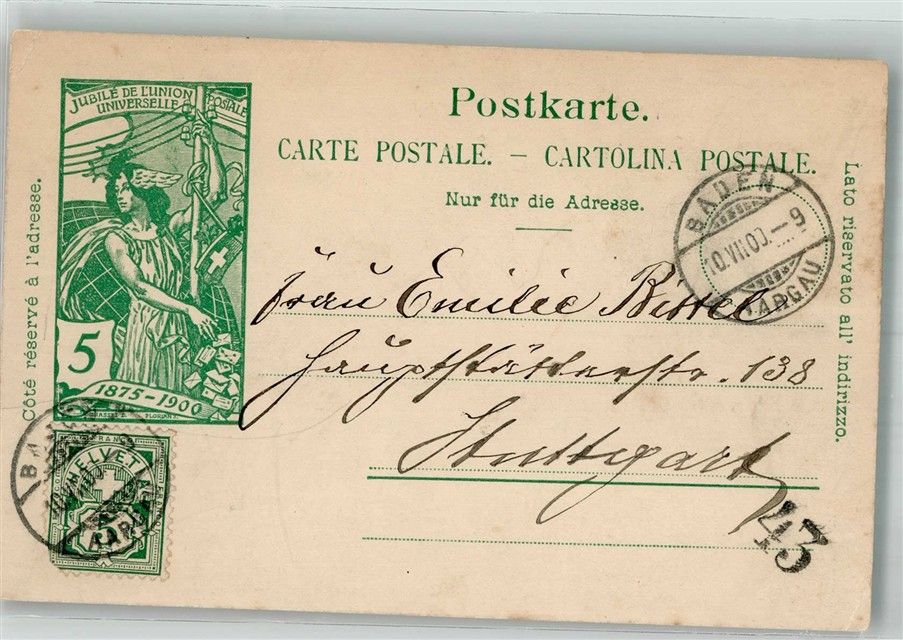 JUBILÉ DE L'UNION
UNIVERSELLE POSTALE
5
1875-1900
Postkarte.
CARTE POSTALE. — CARTOLINA POSTALE.
Nur für die Adresse.
Côté réservé à l'adresse.
Lato riservato all' indirizzo.
BADEN
10.VII.00.-9
AARGAU
Frau Emilie
Hauptstätterstr. 138
Stuttgart
43
FRANCO
HELVETIA
5